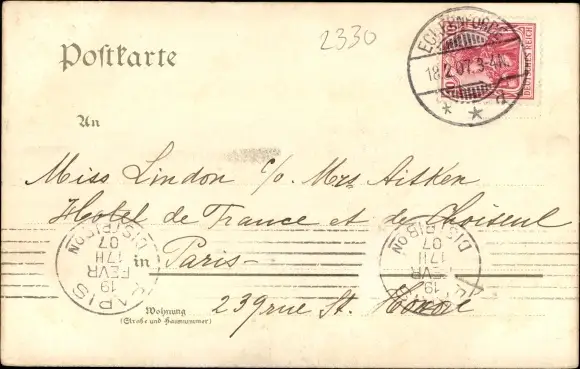 2330
Postkarte
ECKERNFÖRDE
18.2.07.3-4N.
DEUTSCHES REICH
An
Miss Lindon c/o Mrs Aitken
Hotel de France et de Choiseul
in Paris-
239 rue St. Honoré
Wohnung
(Straße und Hausnummer)
PARIS
19
FEVR
17H
07
DISTRIBON
PARIS
19
FEVR
17H
07
DISTRIBON